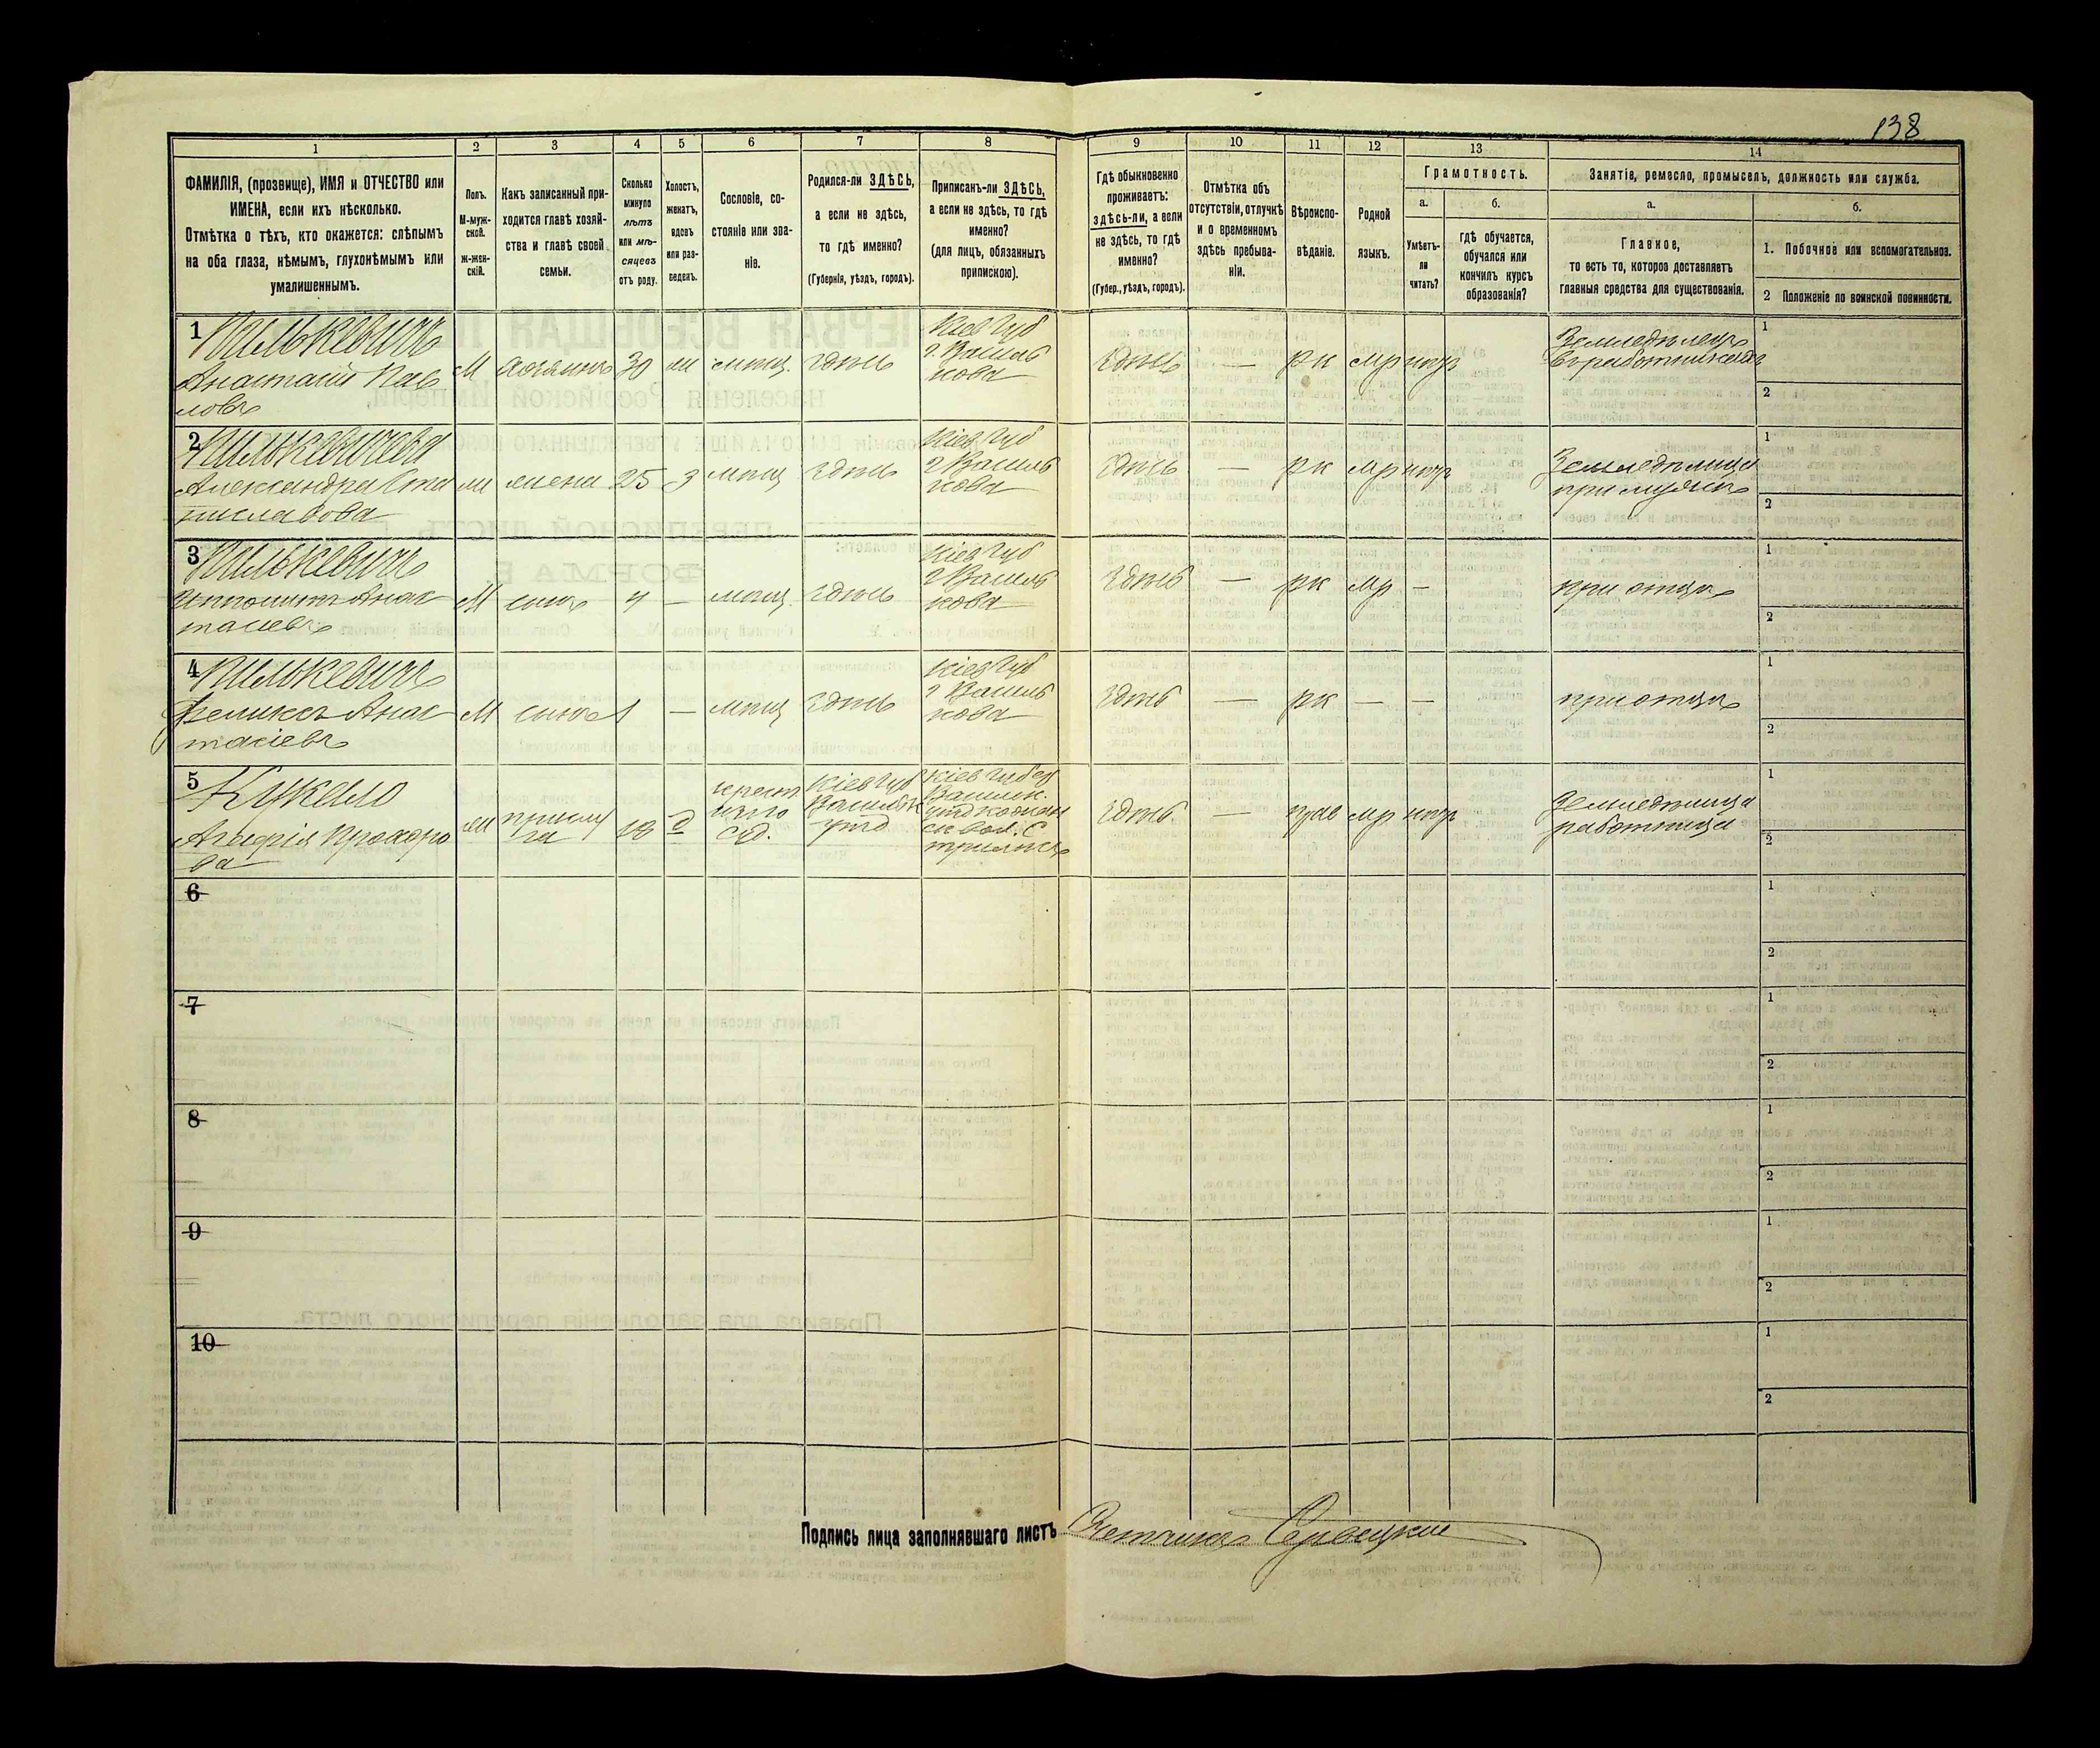 138
1
2
3
4
5
6
7
8
9
10
11
12
13
14
ФАМИЛІЯ, (прозвище), ИМЯ и ОТЧЕСТВО или
ИМЕНА, если ихъ нѣсколько.
Отмѣтка о тѣхъ, кто окажется: слѣпымъ
на оба глаза, нѣмымъ, глухонѣмымъ или
умалишеннымъ.
Полъ.
М-муж-
ской.
ж-жен-
скій.
Какъ записанный при-
ходится главѣ хозяй-
ства и главѣ своей
семьи.
Сколько
минуло
лѣтъ
или мѣ-
сяцевъ
отъ роду.
Холостъ,
женатъ,
вдовъ
или раз-
веденъ.
Сословіе, со-
стояніе или зва-
ніе.
Родился-ли ЗДѢСЬ,
а если не здѣсь,
то гдѣ именно?
(Губернія, уѣздъ, городъ).
Приписанъ-ли ЗДѢСЬ,
а если не здѣсь, то гдѣ
именно?
(для лицъ, обязанныхъ
припискою).
Гдѣ обыкновенно
проживаетъ:
здѣсь-ли, а если
не здѣсь, то гдѣ
именно?
(Губер., уѣздъ, городъ).
Отмѣтка объ
отсутствіи, отлучкѣ
и о временномъ
здѣсь пребыва-
ніи.
Вѣроиспо-
вѣданіе.
Родной
языкъ.
Грамотность.
а.
Умѣетъ-
ли
читать?
б.
гдѣ обучается,
обучался или
кончилъ курсъ
образованія?
Занятіе, ремесло, промыселъ, должность или служба.
а.
Главное,
то есть то, которое доставляетъ
главныя средства для существованія.
б.
1. Побочное или вспомогательное.
2 Положеніе по воинской повинности.
1
Пилькевичъ
Анастасій Пав
ловъ
М
хозяинъ
30
ж
мѣщ.
здѣсь
Кіев Губ
г. Василь
кова
здѣсь
—
рк
мр
нгр
Земледѣлецъ
1
2
2
Пилькевичева
Александра Ста
ниславова
ж
жена
25
з
мѣщ
здѣсь
Кіев Губ
г Василь
кова
здѣсь
—
рк
мр
нгр
Земледѣлица
при мужѣ
1
2
3
Пилькевичъ
Ипполитъ Анас
тасіевъ
М
сынъ
4
—
мѣщ.
здѣсь
Кіев Губ
г Василь
кова
здѣсь
—
рк
мр
—
при отцѣ
1
2
4
Пилькевичъ
Феликсъ Анас
тасіевъ
М
сынъ
1
—
мѣщ
здѣсь
Кіев Губ
г Василь
кова
здѣсь
—
рк
—
—
при отцѣ
1
2
5
Кукало
Агафія Прохоро
ва
ж
прислу
га
18
д
Кіев Губ
здѣсь
—
прав
мр
нгр
Земледѣлица
работница
1
2
6
1
2
7
1
2
8
1
2
9
1
2
10
1
2
Подпись лица заполнявшаго листъ